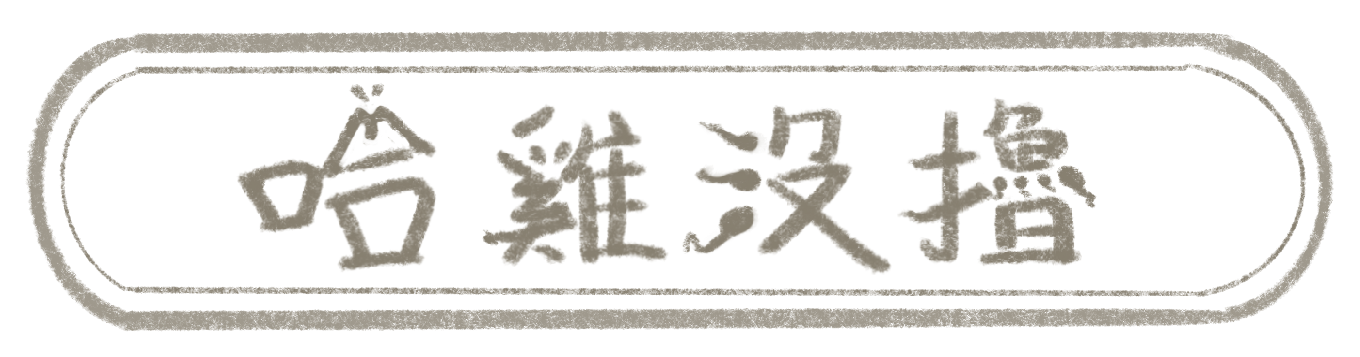 哈雞沒擼